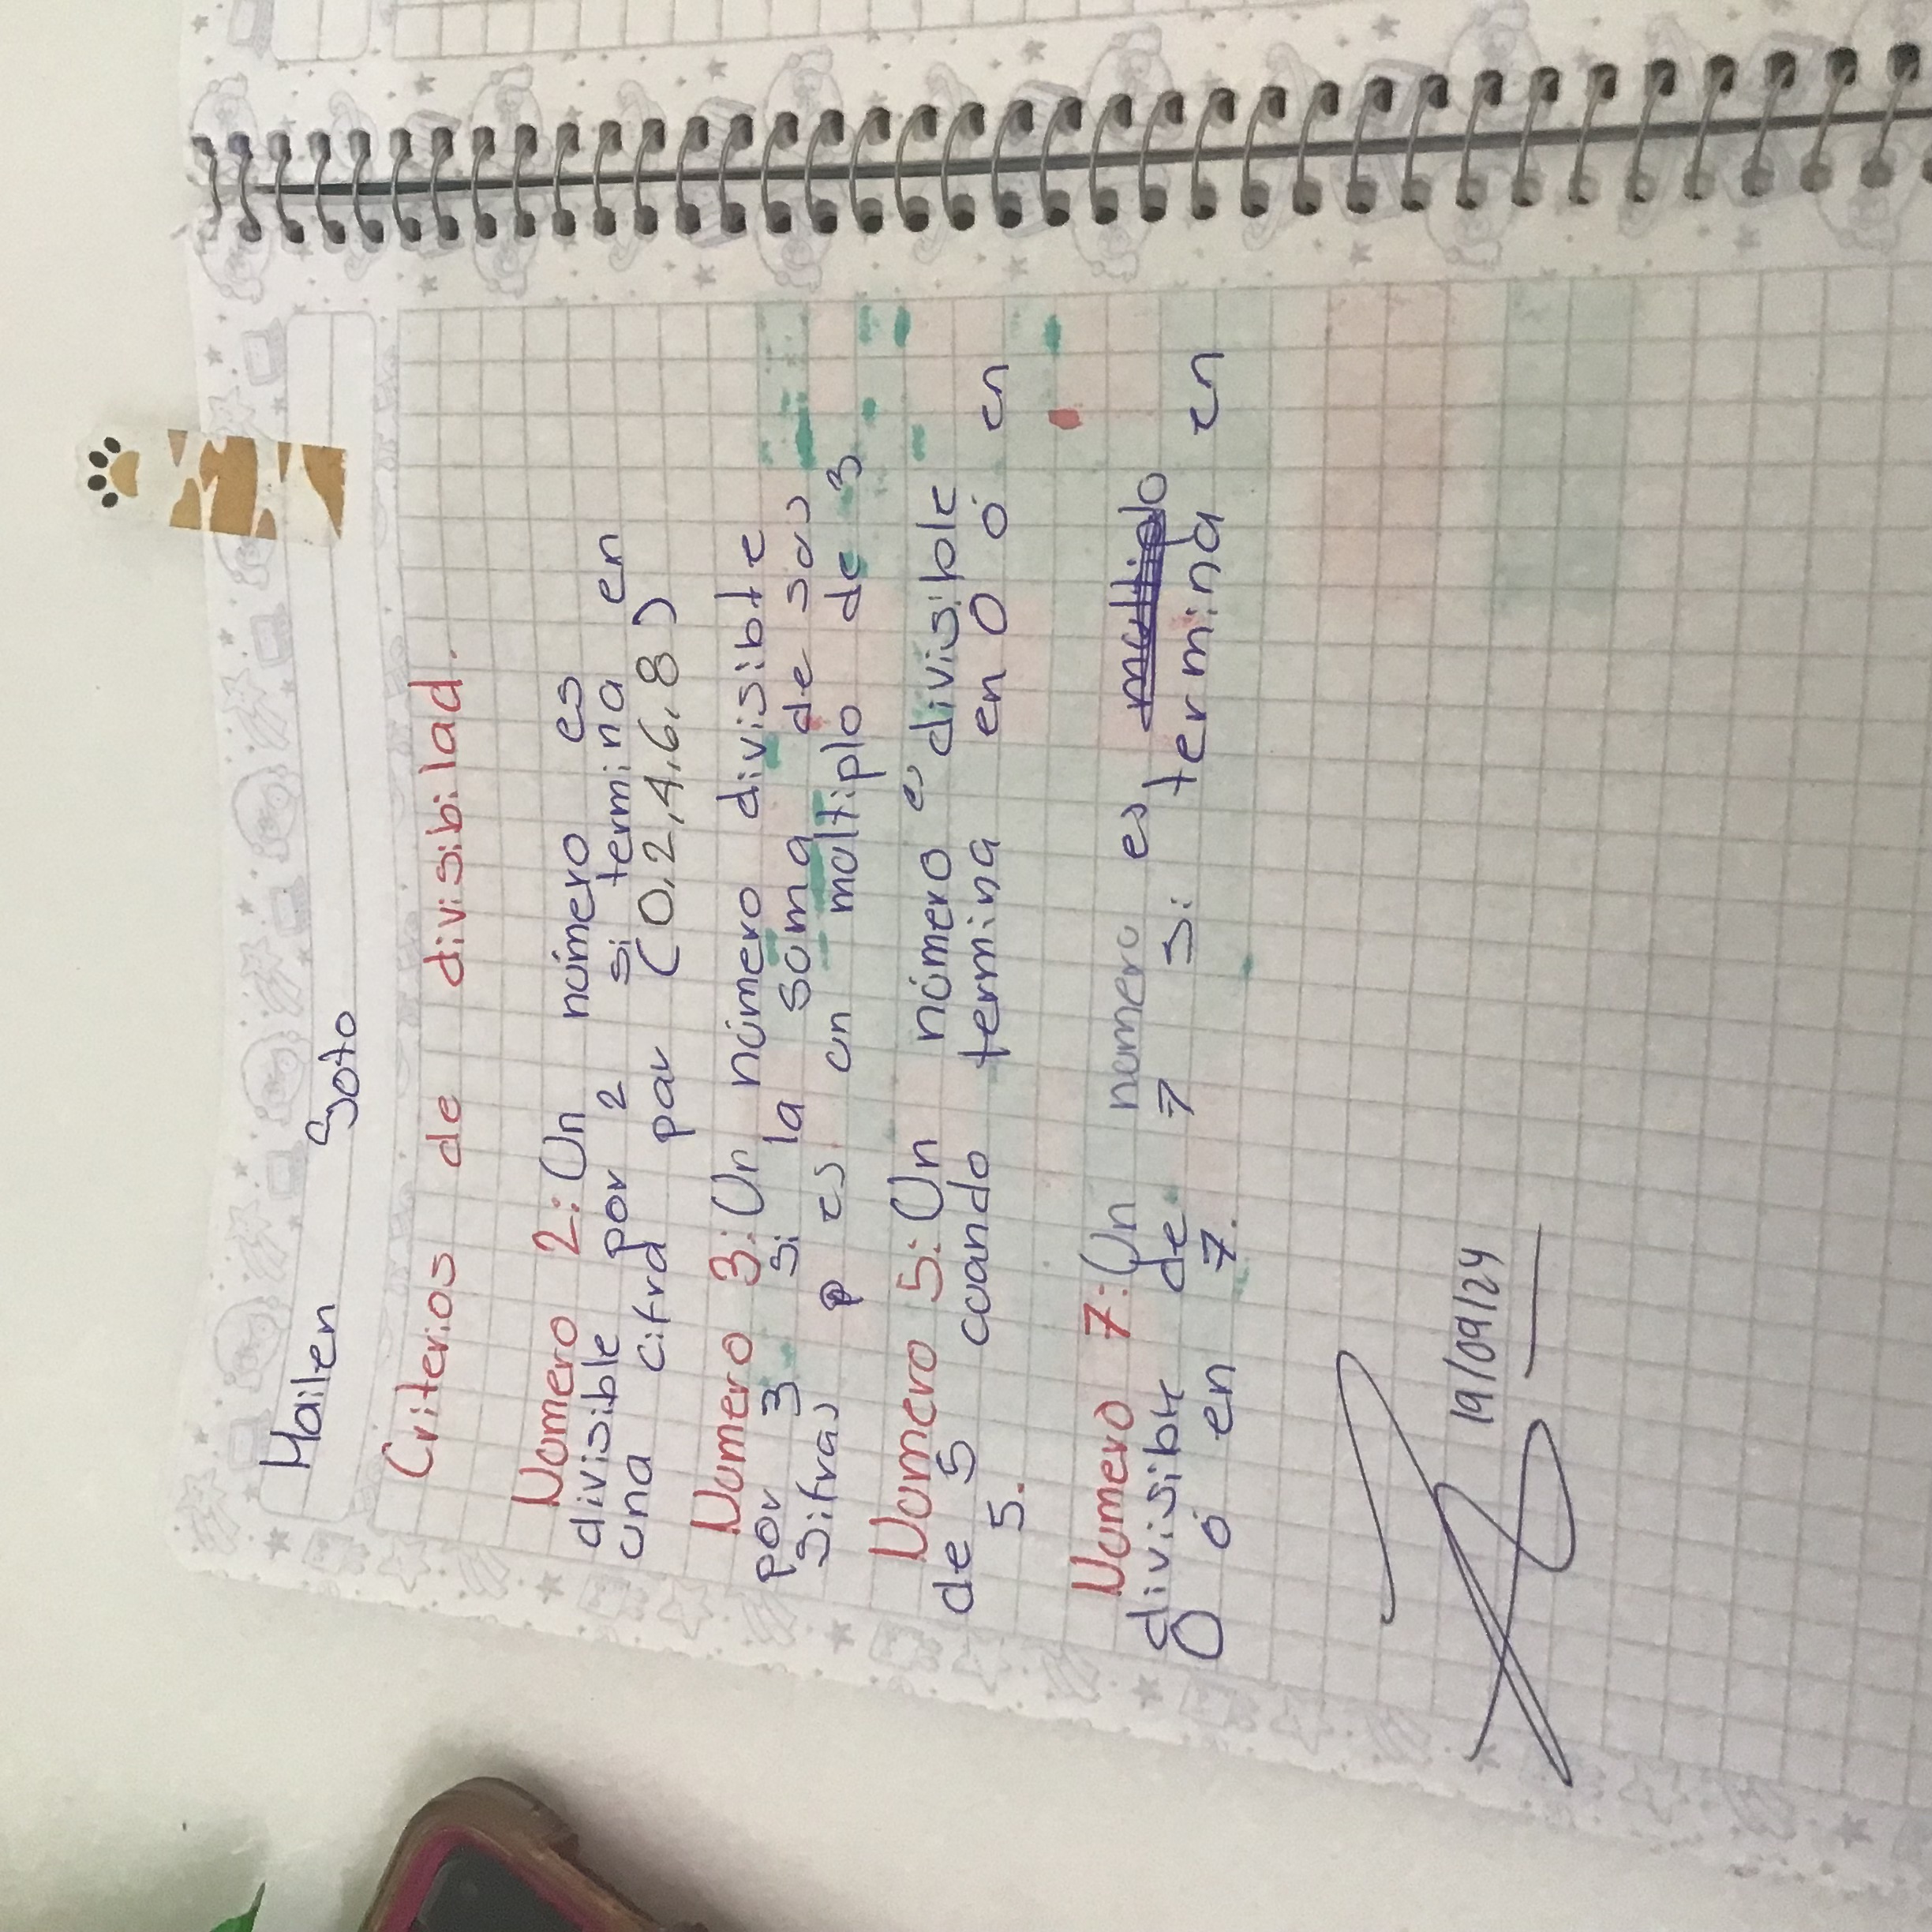 Mailen Soto
Criterios de divisibilad.
Numero 2: Un número es
divisible por 2 si termina en
una cifra par (0,2,4,6,8)
Numero 3: Un número divisible
por 3 si la soma de sus
sifras es un moltiplo de 3
Numero 5: Un número es divisible
de 5 cuando termina en 0 ó en
5.
Numero 7: Un numero es
divisible de 7 si termina en
0 ó en 7.
19/09/24